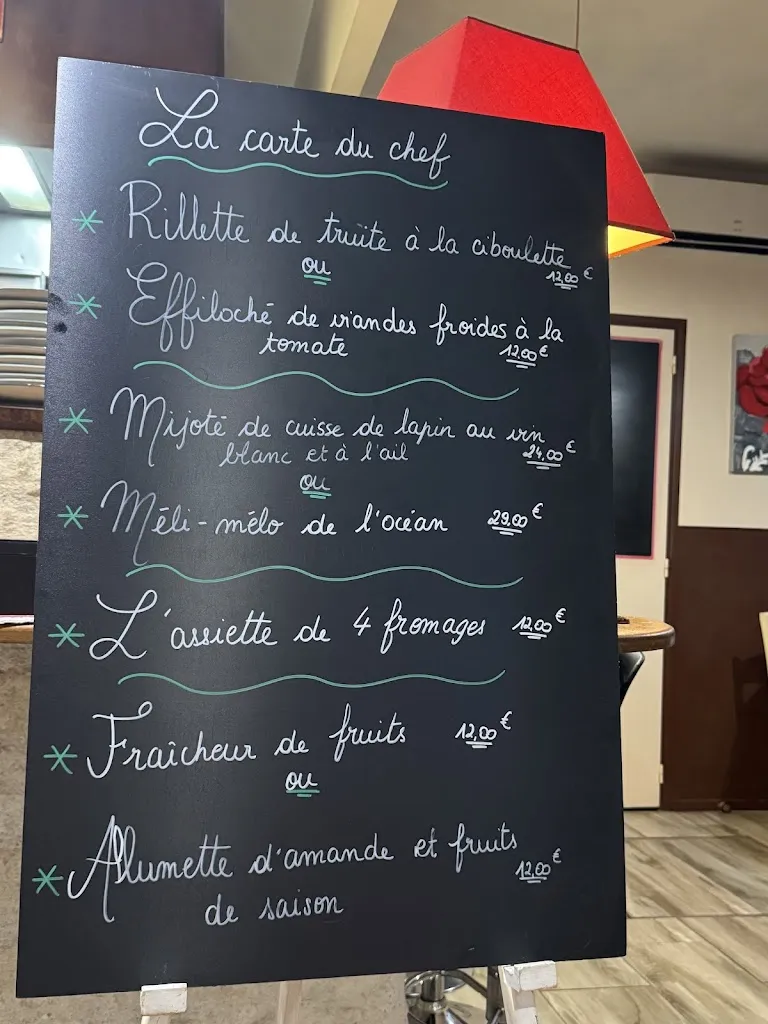 La carte du chef
* Rillette de truite à la ciboulette
12,00 €
ou
* Effiloché de viandes froides à la
tomate 12,00 €
* Mijoté de cuisse de lapin au vin
blanc et à l'ail 24,00 €
ou
* Méli-mélo de l'océan 29,00 €
* L'assiette de 4 fromages 12,00 €
* Fraîcheur de fruits 12,00 €
ou
* Allumette d'amande et fruits
de saison 12,00 €